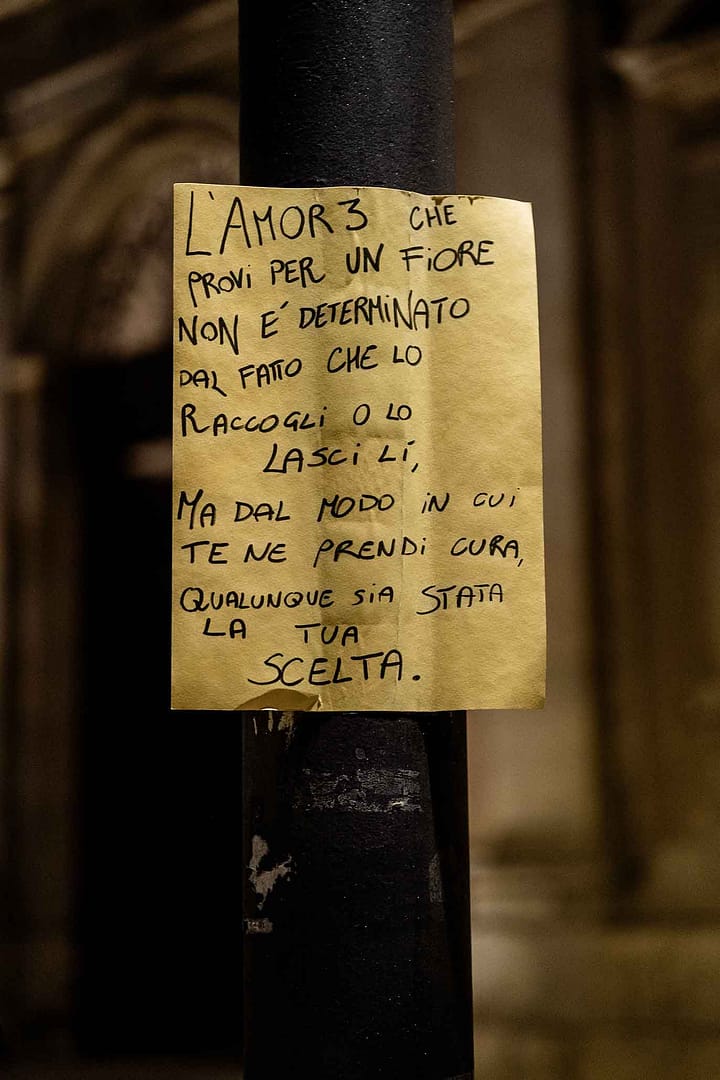 L'AMOR3 CHE
PROVi PER UN FiORE
NON E' DETERMiNATO
DAL FATTO CHE LO
RACCOGLi O LO
LASCi LÍ,
MA DAL MODO iN CUi
TE NE PRENDi CURA,
QUALUNQUE SiA STATA
LA TUA
SCELTA.